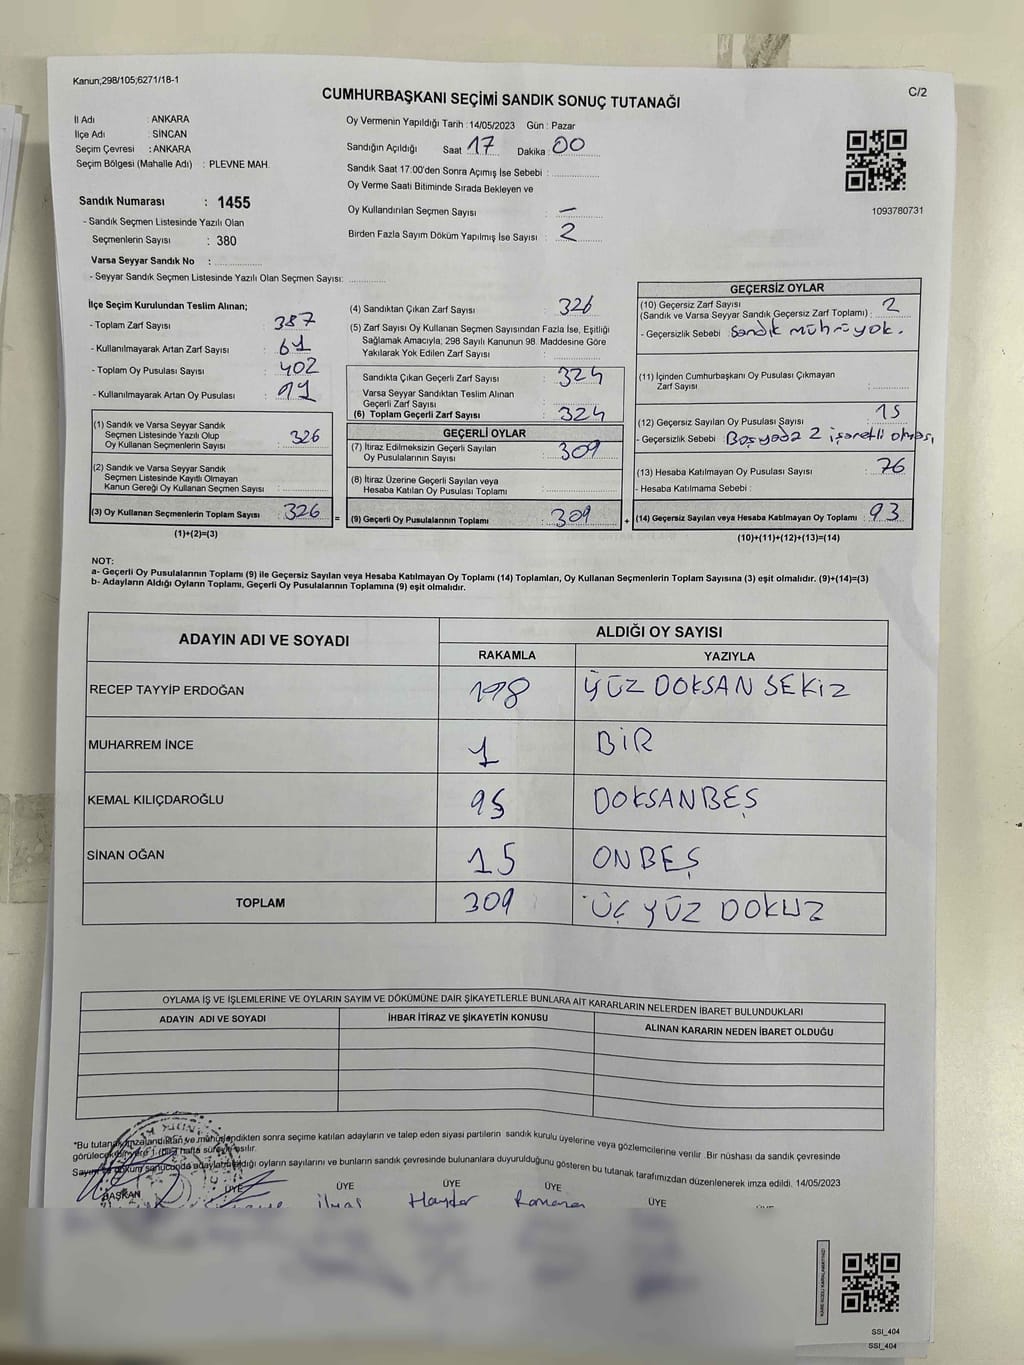 Kanun;298/105;6271/18-1
CUMHURBAŞKANI SEÇİMİ SANDIK SONUÇ TUTANAĞI
C/2
İl Adı : ANKARA
İlçe Adı : SİNCAN
Seçim Çevresi : ANKARA
Seçim Bölgesi (Mahalle Adı) : PLEVNE MAH.
Sandık Numarası : 1455
- Sandık Seçmen Listesinde Yazılı Olan
Seçmenlerin Sayısı : 380
Varsa Seyyar Sandık No :
- Seyyar Sandık Seçmen Listesinde Yazılı Olan Seçmen Sayısı:
Oy Vermenin Yapıldığı Tarih : 14/05/2023 Gün : Pazar
Sandığın Açıldığı Saat 17 Dakika : 00
Sandık Saat 17:00'den Sonra Açımış İse Sebebi :
Oy Verme Saati Bitiminde Sırada Bekleyen ve
Oy Kullandırılan Seçmen Sayısı : —
Birden Fazla Sayım Döküm Yapılmış İse Sayısı : 2
1093780731
İlçe Seçim Kurulundan Teslim Alınan;
- Toplam Zarf Sayısı : 387
- Kullanılmayarak Artan Zarf Sayısı : 61
- Toplam Oy Pusulası Sayısı : 402
- Kullanılmayarak Artan Oy Pusulası :
(1) Sandık ve Varsa Seyyar Sandık
Seçmen Listesinde Yazılı Olup
Oy Kullanan Seçmenlerin Sayısı : 326
(2) Sandık ve Varsa Seyyar Sandık
Seçmen Listesinde Kayıtlı Olmayan
Kanun Gereği Oy Kullanan Seçmen Sayısı :
(3) Oy Kullanan Seçmenlerin Toplam Sayısı : 326 =
(1)+(2)=(3)
(4) Sandıktan Çıkan Zarf Sayısı : 326
(5) Zarf Sayısı Oy Kullanan Seçmen Sayısından Fazla İse, Eşitliği
Sağlamak Amacıyla; 298 Sayılı Kanunun 98. Maddesine Göre
Yakılarak Yok Edilen Zarf Sayısı :
Sandıkta Çıkan Geçerli Zarf Sayısı : 324
Varsa Seyyar Sandıktan Teslim Alınan
Geçerli Zarf Sayısı :
(6) Toplam Geçerli Zarf Sayısı : 324
GEÇERLİ OYLAR
(7) İtiraz Edilmeksizin Geçerli Sayılan
Oy Pusulalarının Sayısı : 309
(8) İtiraz Üzerine Geçerli Sayılan veya
Hesaba Katılan Oy Pusulası Toplamı :
(9) Geçerli Oy Pusulalarının Toplamı : 309 +
GEÇERSİZ OYLAR
(10) Geçersiz Zarf Sayısı
(Sandık ve Varsa Seyyar Sandık Geçersiz Zarf Toplamı) : 2
- Geçersizlik Sebebi : Sandık mührü yok.
(11) İçinden Cumhurbaşkanı Oy Pusulası Çıkmayan
Zarf Sayısı :
(12) Geçersiz Sayılan Oy Pusulası Sayısı : 15
- Geçersizlik Sebebi : Boş yada 2 işaretli olması
(13) Hesaba Katılmayan Oy Pusulası Sayısı : 76
- Hesaba Katılmama Sebebi :
(14) Geçersiz Sayılan veya Hesaba Katılmayan Oy Toplamı : 93
(10)+(11)+(12)+(13)=(14)
NOT:
a- Geçerli Oy Pusulalarının Toplamı (9) ile Geçersiz Sayılan veya Hesaba Katılmayan Oy Toplamı (14) Toplamları, Oy Kullanan Seçmenlerin Toplam Sayısına (3) eşit olmalıdır. (9)+(14)=(3)
b- Adayların Aldığı Oyların Toplamı, Geçerli Oy Pusulalarının Toplamına (9) eşit olmalıdır.
ADAYIN ADI VE SOYADI ALDIĞI OY SAYISI
RAKAMLA YAZIYLA
RECEP TAYYİP ERDOĞAN 198 YÜZ DOKSAN SEKİZ
MUHARREM İNCE 1 BİR
KEMAL KILIÇDAROĞLU 95 DOKSANBEŞ
SİNAN OĞAN 15 ONBEŞ
TOPLAM 309 ÜÇ YÜZ DOKUZ
OYLAMA İŞ VE İŞLEMLERİNE VE OYLARIN SAYIM VE DÖKÜMÜNE DAİR ŞİKAYETLERLE BUNLARA AİT KARARLARIN NELERDEN İBARET BULUNDUKLARI
ADAYIN ADI VE SOYADI İHBAR İTİRAZ VE ŞİKAYETİN KONUSU ALINAN KARARIN NEDEN İBARET OLDUĞU
*Bu tutanak imzalandıktan ve mühürlendikten sonra seçime katılan adayların ve talep eden siyasi partilerin sandık kurulu üyelerine veya gözlemcilerine verilir. Bir nüshası da sandık çevresinde
görülecek bir yere 1 (bir) hafta süreyle asılır.
Sayım ve döküm sonucunda adayların aldığı oyların sayılarını ve bunların sandık çevresinde bulunanlara duyurulduğunu gösteren bu tutanak tarafımızdan düzenlenerek imza edildi. 14/05/2023
BAŞKAN ÜYE ÜYE ÜYE ÜYE ÜYE
İlyas Haydar Ramazan
SSI_404
SSI_404